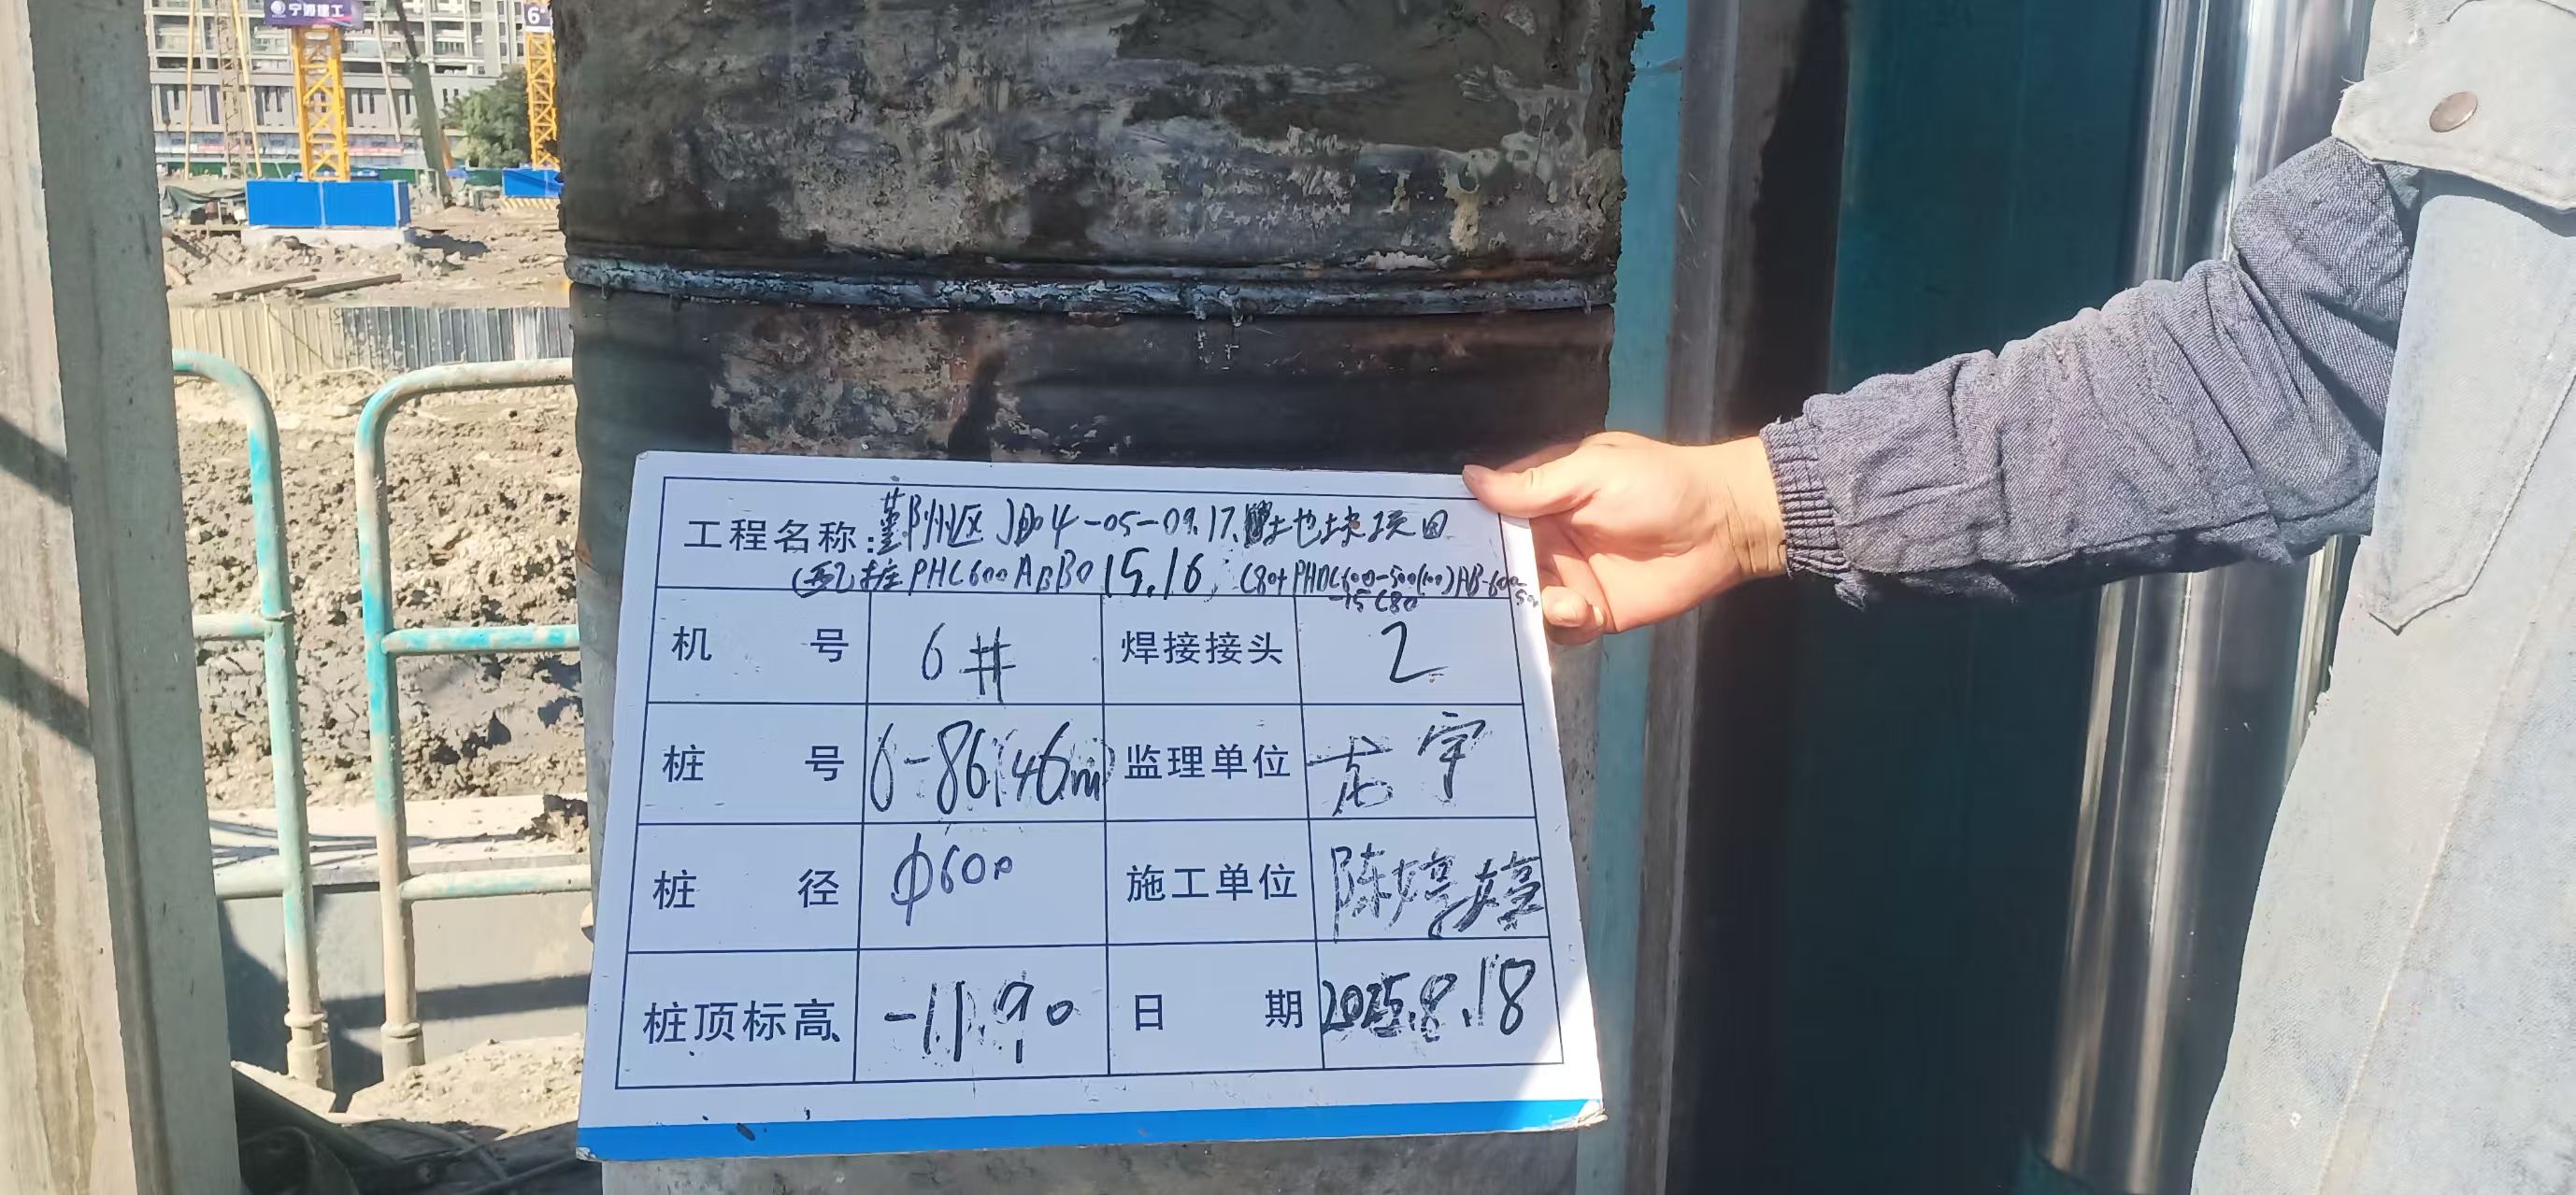 宁波建工
6#
工程名称：鄞州区JD04-05-09.17.地块项目
(配)桩PHC600AB130 15.16, C80+PHDC600-500(100)AB-600-500
-15 C80
机 号 6# 焊接接头 2
桩 号 6-86(46m) 监理单位 宇
桩 径 φ600 施工单位 陈婷婷
桩顶标高 -11.90 日 期 2025.8.18